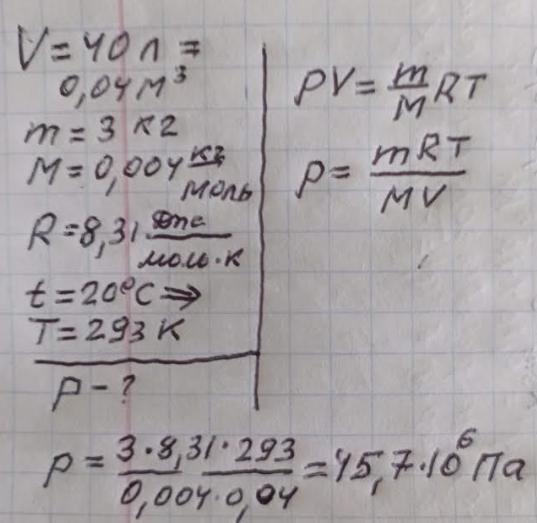 V = 40 л =
0,04 м³
m = 3 кг
M = 0,004 кг/моль
R = 8,31 Дж/моль·К
t = 20°C ⇒
T = 293 К
p – ?
pV = m/M RT
p = mRT/MV
p = 3·8,31·293/0,004·0,04 = 45,7·10⁶ Па